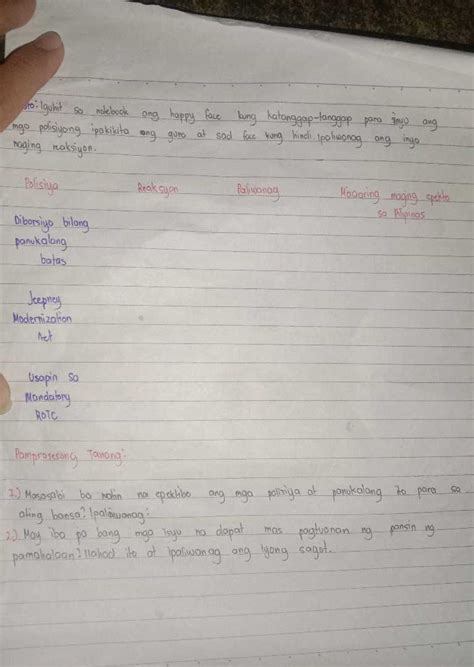 Iguhit sa notebook ang happy face kung katanggap-tanggap para inyo ang
mga polisiyang ipakikita ang guro at sad face kung hindi. Ipaliwanag ang inyo
naging reaksiyon.
Polisiya Reaksiyon Paliwanag Maaaring maging epekto
sa Pilipinas
Diborsiyo bilang
panukalang
batas
Jeepney
Modernization
Act
Usapin sa
Mandatory
ROTC
Pamprosesong Tanong:
1.) Masasabi ba natin na epektibo ang mga polisiya at panukalang ito para sa
ating bansa? Ipaliwanag.
2.) May iba pa bang mga isyu na dapat mas pagtuunan ng pansin ng
pamahalaan? Ilahad ito at ipaliwanag ang iyong sagot.